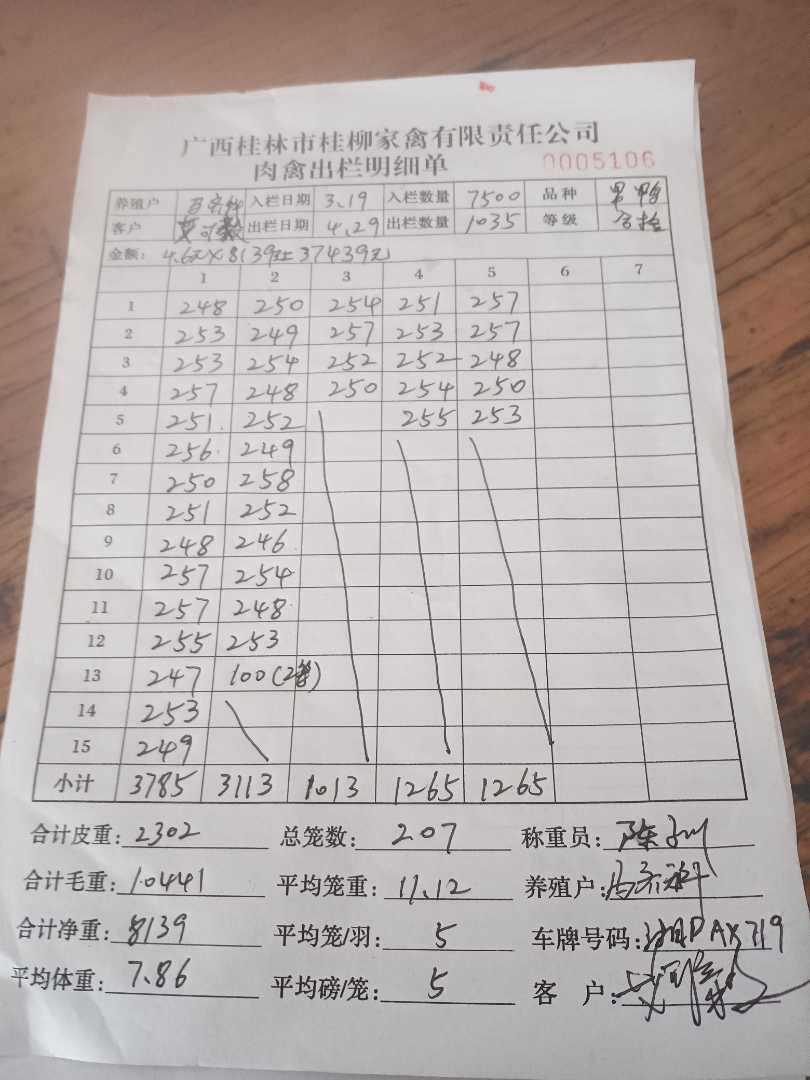 广西桂林市桂柳家禽有限责任公司
肉禽出栏明细单 0005106
养殖户 入栏日期 3.19 入栏数量 7500 品种 黑鸭
客户 出栏日期 4.29 出栏数量 1035 等级
金额: 4.6元×8139斤= 37439元
1 2 3 4 5 6 7
1 248 250 254 251 257
2 253 249 257 253 257
3 253 254 252 252 248
4 257 248 250 254 250
5 251 252 255 253
6 256 249
7 250 258
8 251 252
9 248 246
10 257 254
11 257 248
12 255 253
13 247 100(2笼)
14 253
15 249
小计 3785 3113 1013 1265 1265
合计皮重: 2302 总笼数: 207 称重员: 陈
合计毛重: 10441 平均笼重: 11.12 养殖户:
合计净重: 8139 平均笼/羽: 5 车牌号码: 湘DAX719
平均体重: 7.86 平均磅/笼: 5 客 户: